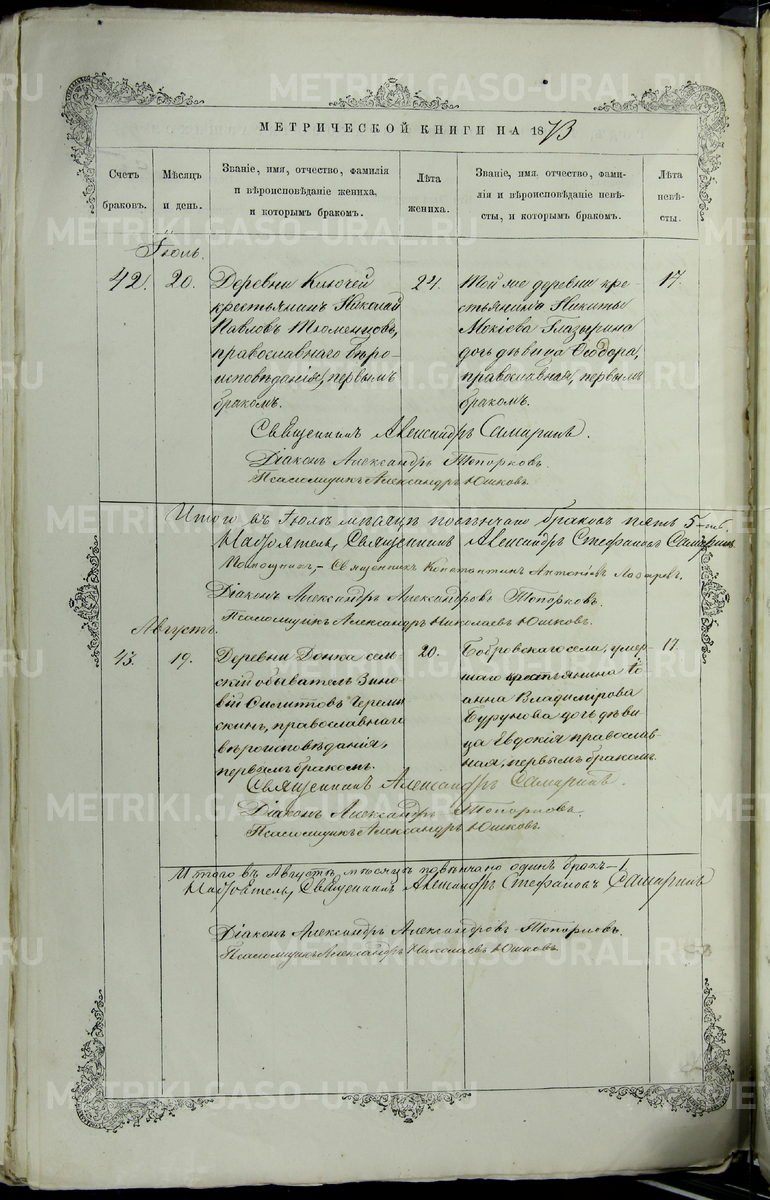 МЕТРИЧЕСКОЙ КНИГИ НА 1873
Счетъ браковъ.
Мѣсяцъ и день.
Званіе, имя, отчество, фамилія
и вѣроисповѣданіе жениха,
и которымъ бракомъ.
Лѣта жениха.
Званіе, имя, отчество, фами-
лія и вѣроисповѣданіе невѣ-
сты, и которымъ бракомъ.
Лѣта невѣ-
сты.
Іюль.
42.
20.
Деревни Ключей
крестьянинъ Николай
Павловъ Тюменцовъ,
православнаго вѣро-
исповѣданія, первымъ
бракомъ.
24.
Той же деревни кре-
стьянина Никиты
Мокіева Глазырина
дочь дѣвица Ѳеодора,
православная, первымъ
бракомъ.
17.
Священникъ Александръ Самаринъ.
Діаконъ Александръ Топорковъ.
Псаломщикъ Александръ Юшковъ.
Итого въ Іюлѣ мѣсяцѣ повѣнчано браковъ пять 5-ть.
Настоятель, Священникъ Александръ Стефановъ Самаринъ.
Помощникъ,- Священникъ Константинъ Антоніевъ Лазаревъ.
Діаконъ Александръ Александровъ Топорковъ.
Псаломщикъ Александръ Николаевъ Юшковъ.
Августъ.
43.
19.
Деревни Донка сель-
скій обыватель Зино-
вій Филитовъ Череми
скинъ, православнаго
вѣроисповѣданія,
первымъ бракомъ.
20.
Бобровскаго села, умер-
шаго крестьянина Іо
анна Владимірова
Бурунова дочь дѣви
ца Евдокія православ
ная, первымъ бракомъ.
17.
Священникъ Александръ Самаринъ.
Діаконъ Александръ Топорковъ.
Псаломщикъ Александръ Юшковъ.
Итого въ Августѣ мѣсяцѣ повѣнчано одинъ бракъ-1.
Настоятель, Священникъ Александръ Стефановъ Самаринъ
Діаконъ Александръ Александровъ Топорковъ.
Псаломщикъ Александръ Николаевъ Юшковъ.
METRIKI.GASO-URAL.RU